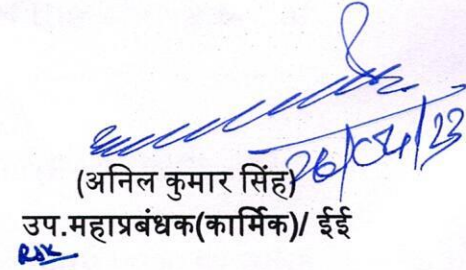 26/04/23
(अनिल कुमार सिंह)
उप.महाप्रबंधक(कार्मिक)/ ईई